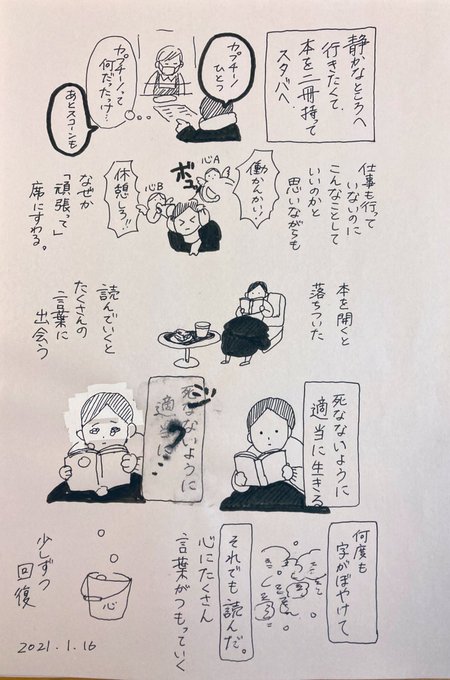 静かなところへ
行きたくて、
本を二冊持って
スタバへ。
カプチーノ
ひとつ
カプチーノって
何だったっけ…
あとスコーンも
仕事も行って
いないのに
こんなことして
いいのかと
思いながらも
心A
働かんかい!
ボコッ
心B
休憩しろ!!
なぜか
「頑張って」
席にすわる。
本を開くと
落ちついた
読んでいくと
たくさんの
言葉に
出会う
死なないように
適当に生きる
死なないように
適当に
何度も
字がぼやけて
それでも読んだ。
心にたくさん
言葉がつもっていく
心
少しずつ
回復
2021.1.16